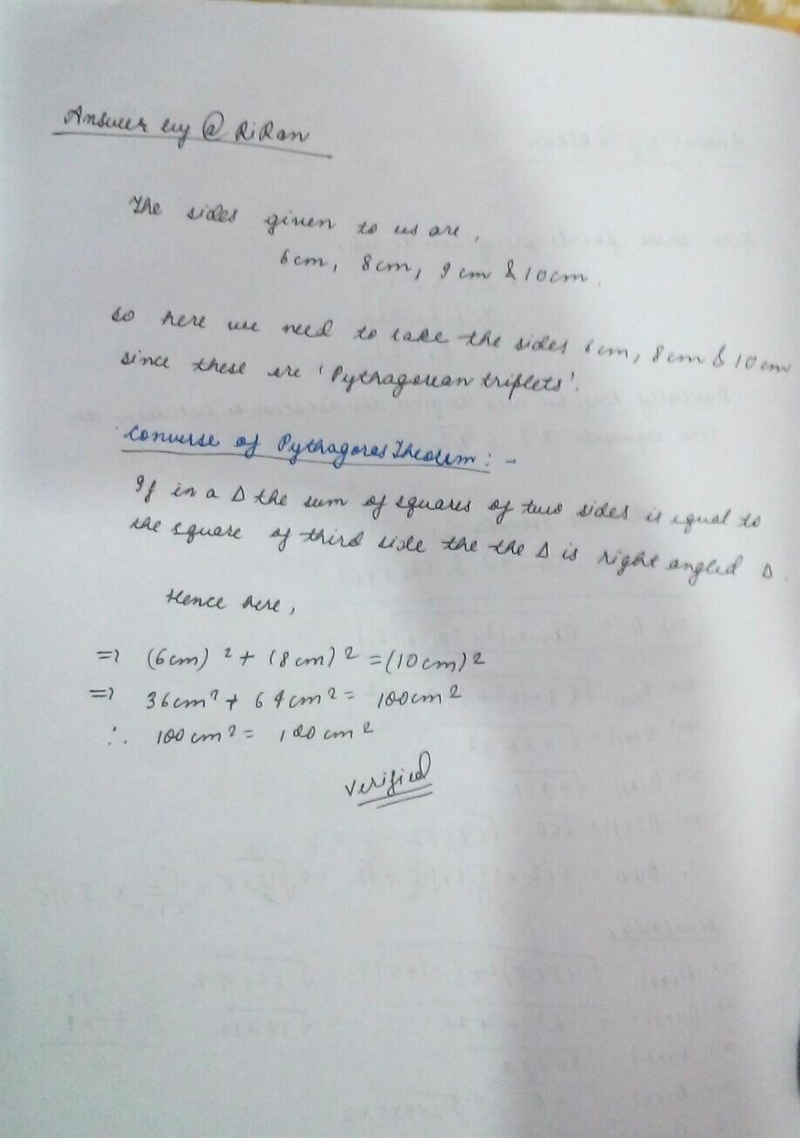 Answer by @ RiRan
The sides given to us are,
6cm, 8cm, 9cm & 10cm.
so here we need to take the sides 6cm, 8cm & 10cm
since these are 'Pythagorean triplets'.
Converse of Pythagores Theorem: -
If in a Δ the sum of squares of two sides is equal to
the square of third side the the Δ is right angled Δ.
Hence here,
=> (6cm)² + (8cm)² = (10cm)²
=> 36cm² + 64cm² = 100cm²
∴ 100cm² = 100cm²
Verified